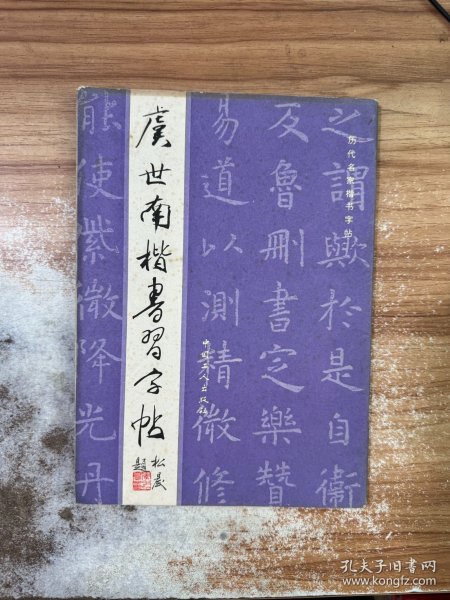 虞世南楷書習字帖
松晨
題
历代名家楷书字帖
中国工人出版社
之謂歟於是自衞
及魯刪書定樂贊
易道以測精微修
能使紫微降光丹
孔夫子旧书网
www.kongfz.com